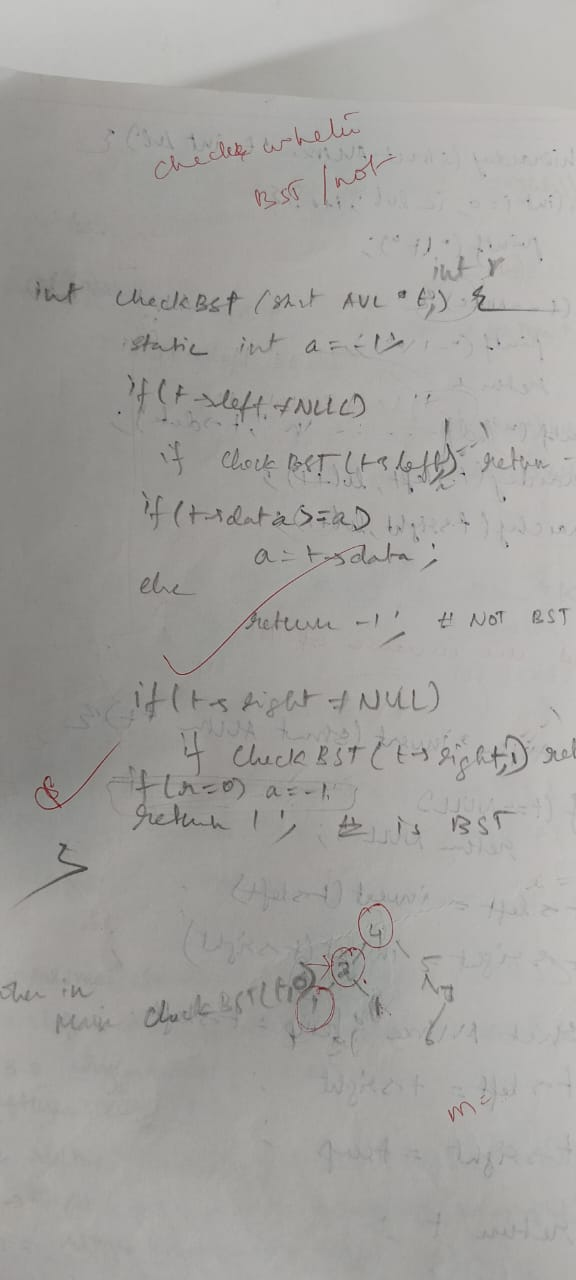 checks whether
BST / not
int r
int checkBST (struct AVL * t,) {
static int a = -1;
if (t->left ≠ NULL)
if checkBST (t->left, 1) return -
if (t->data >= a)
a = t->data ;
else
return -1 ; # NOT BST
if (t->right ≠ NULL)
if checkBST (t->right, 1) ret
if (r=0) a = -1;
return 1 ; # is BST
}
4
2
1
in
main checkBST(t,0)
m=